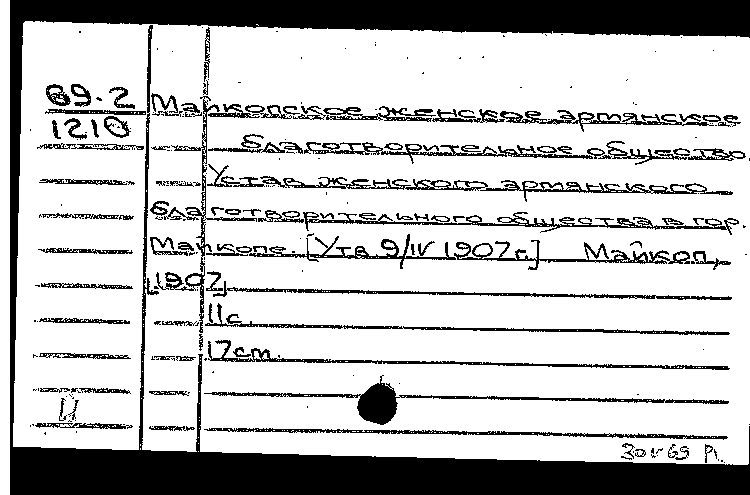 69.2 Майкопское женское армянское
1210 благотворительное общество.
Устав женского армянского
благотворительного общества в гор.
Майкопе. [Утв 9/IV 1907г.]. Майкоп,
[1907]
11с.
17см.
И
30 V 69